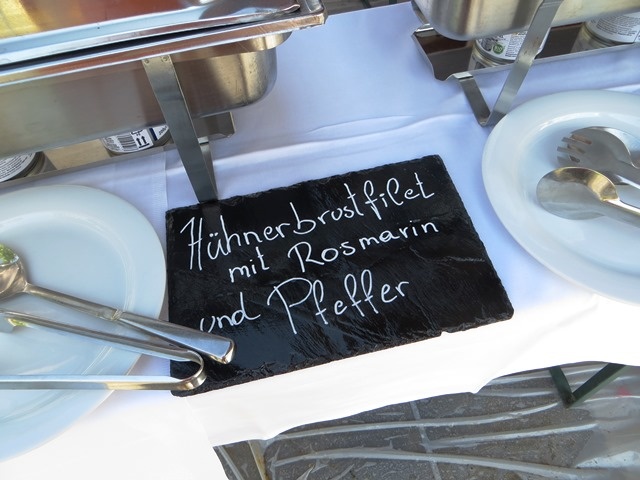 Hühnerbrustfilet
mit Rosmarin
und Pfeffer